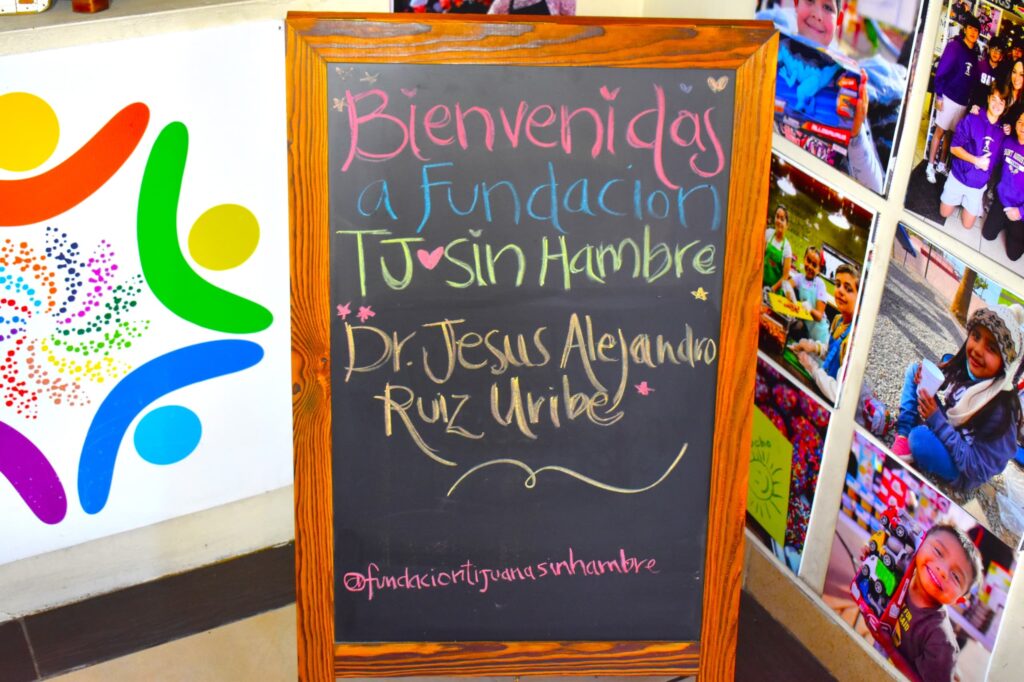 Bienvenidas
a Fundacion
TJ sin Hambre
Dr. Jesus Alejandro
Ruiz Uribe
@fundaciontijuanasinhambre